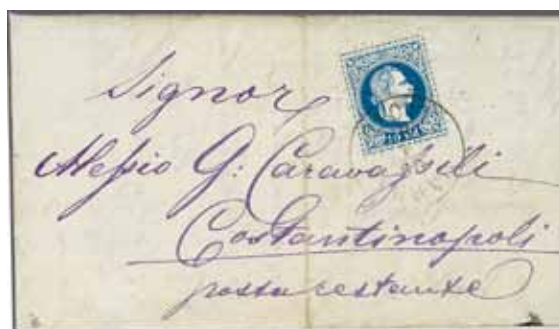 Signor
Alessio G: Caravassili
Costantinopoli
posta restante